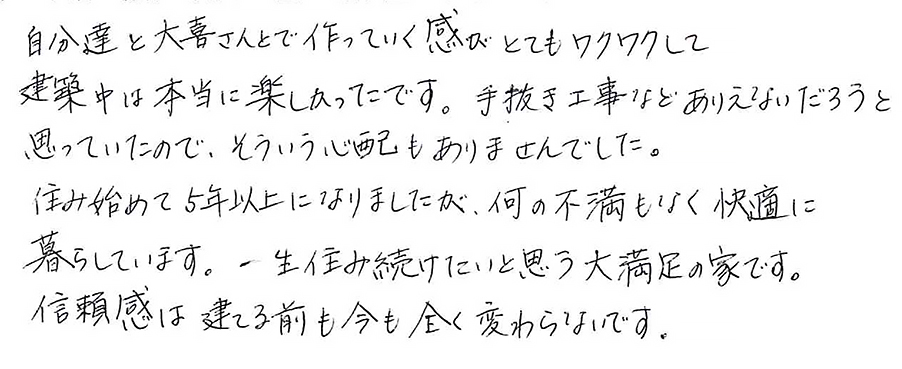 自分達と大喜さんとで作っていく感がとてもワクワクして
建築中は本当に楽しかったです。手抜き工事などありえないだろうと
思っていたので、そういう心配もありませんでした。
住み始めて5年以上になりましたが、何の不満もなく快適に
暮らしています。一生住み続けたいと思う大満足の家です。
信頼感は建てる前も今も全く変わらないです。